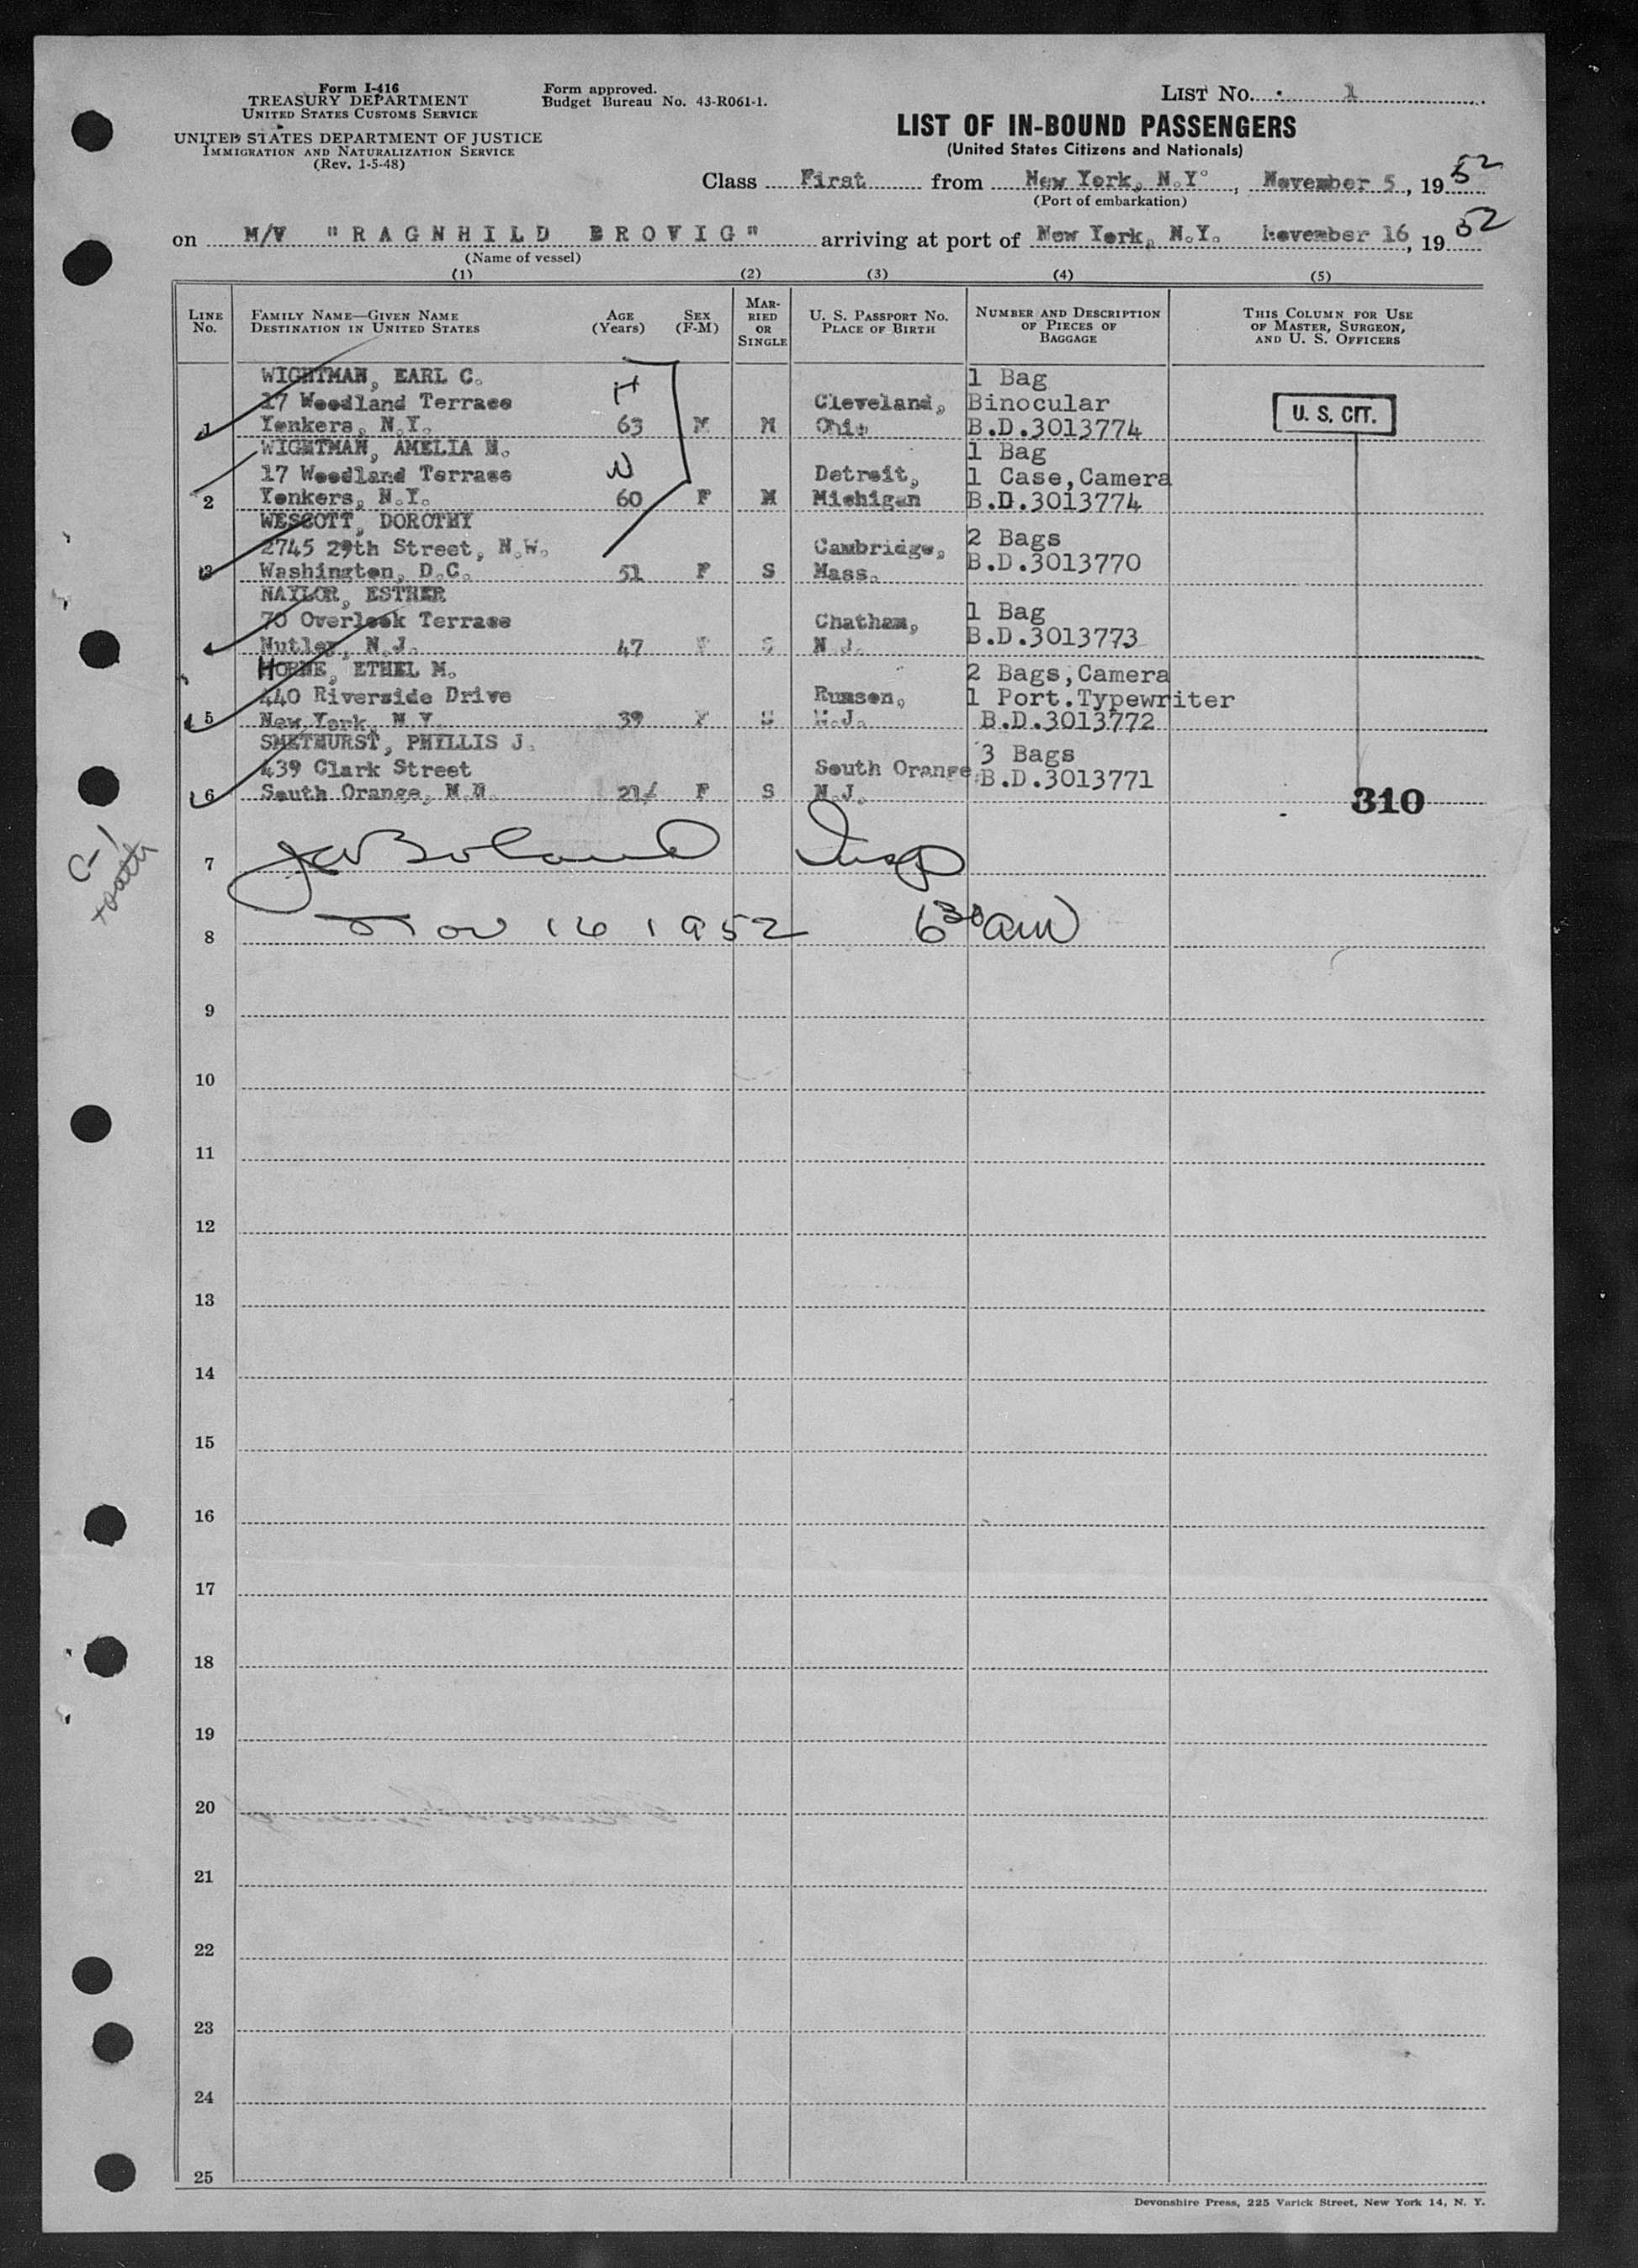 Form I-416
TREASURY DEPARTMENT
UNITED STATES CUSTOMS SERVICE
UNITED STATES DEPARTMENT OF JUSTICE
IMMIGRATION AND NATURALIZATION SERVICE
(Rev. 1-5-48)
Form approved.
Budget Bureau No. 43-R061-1.
LIST No. 1
LIST OF IN-BOUND PASSENGERS
(United States Citizens and Nationals)
Class First from New York, N.Y., November 5, 1952
(Port of embarkation)
on M/V "RAGNHILD BROVIG" arriving at port of New York, N.Y. November 16, 1952
(Name of vessel)
(1) (2) (3) (4) (5)
LINE No.
FAMILY NAME—GIVEN NAME
DESTINATION IN UNITED STATES
AGE (Years)
SEX (F-M)
MARRIED OR SINGLE
U. S. PASSPORT NO.
PLACE OF BIRTH
NUMBER AND DESCRIPTION OF PIECES OF BAGGAGE
THIS COLUMN FOR USE OF MASTER, SURGEON, AND U. S. OFFICERS
WIGHTMAN, EARL C. H 1 Bag
17 Woodland Terrace Cleveland, Binocular U. S. CIT.
1 Yonkers, N.Y. 63 M M Ohio B.D.3013774
WIGHTMAN, AMELIA M. 1 Bag
17 Woodland Terrace Detroit, 1 Case,Camera
2 Yonkers, N.Y. 60 F M Michigan B.D.3013774
WESCOTT, DOROTHY 2 Bags
2745 29th Street, N.W. Cambridge, B.D.3013770
3 Washington, D.C. 51 F S Mass.
NAYLOR, ESTHER 1 Bag
70 Overlook Terrace Chatham, B.D.3013773
4 Nutley, N.J. 47 F S N.J.
HORNE, ETHEL M. 2 Bags,Camera
440 Riverside Drive Rumson, 1 Port.Typewriter
5 New York, N.Y. 39 F S N.J. B.D.3013772
SMETHURST, PHYLLIS J. 3 Bags
439 Clark Street South Orange B.D.3013771
6 South Orange, N.N. 21 F S N.J. 310
C-1
7 Insp
8 Nov 16 1952 6 30 am
9
10
11
12
13
14
15
16
17
18
19
20
21
22
23
24
25
Devonshire Press, 225 Varick Street, New York 14, N. Y.